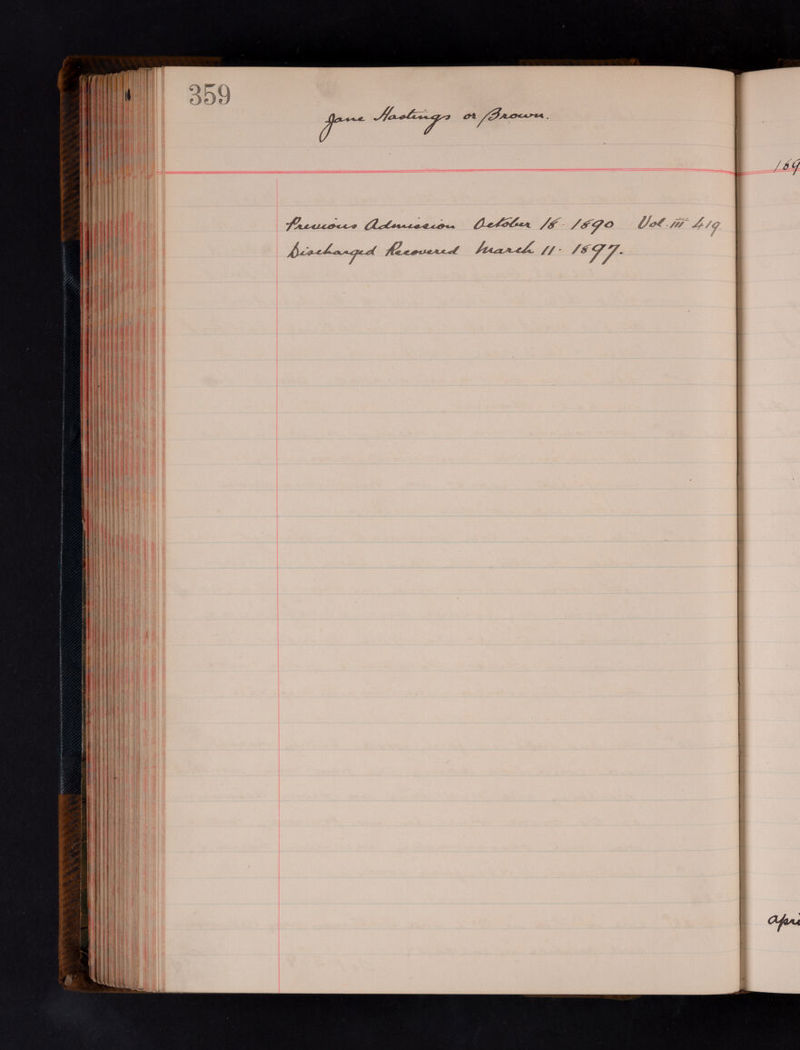 359
Jane Hastings or Brown.
189
Previous Admission October 18 1890 Vol. III 419
Discharged Recovered March 11 - 1897.
Apri